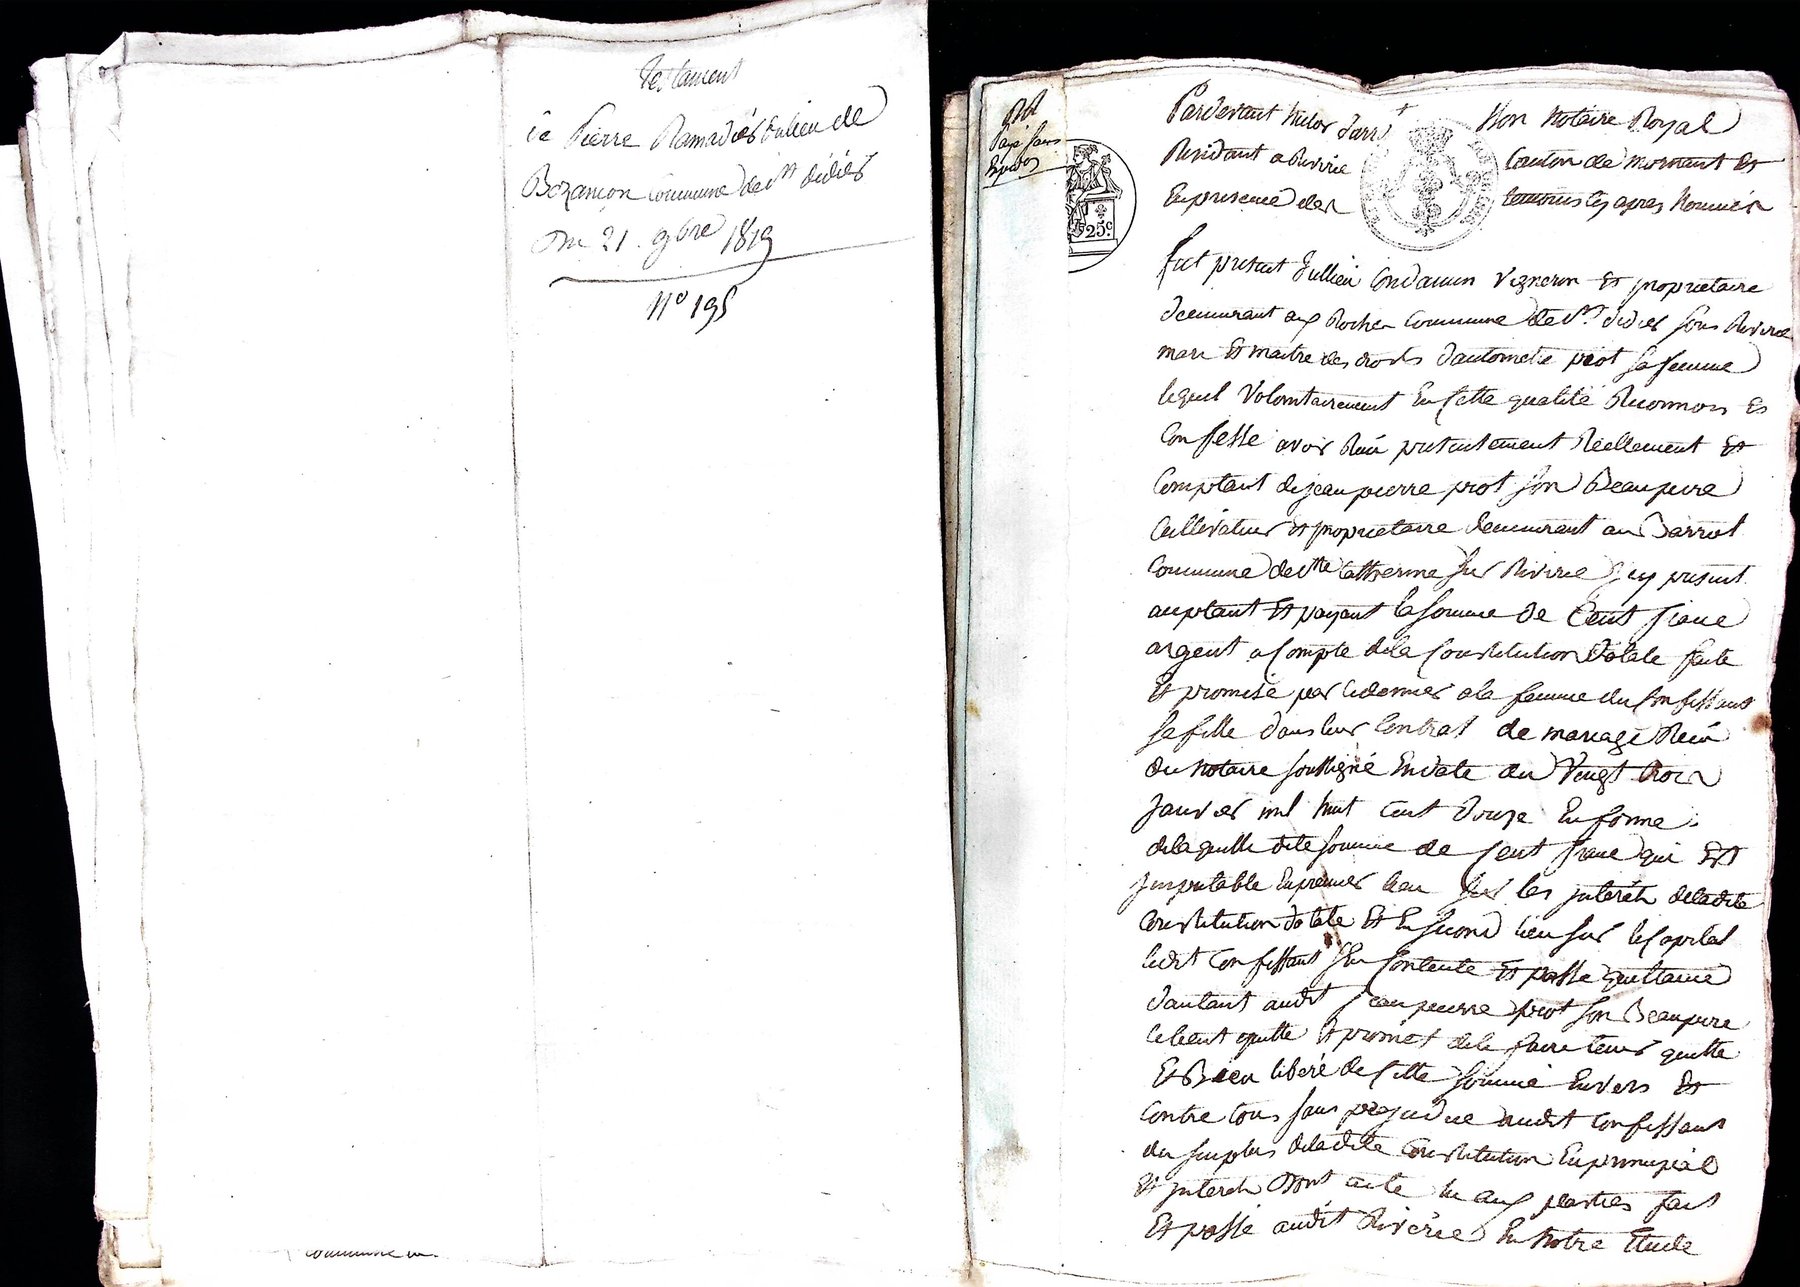 Testament
de Pierre Ramadier du lieu de
Bozançon Commune de St didier
Du 21. 9bre 1819
N° 195
commune
Pardevant Nous Notaire Royal
Residant a Riverie Canton de mornant Et
En presence des temoins cy apres Nommés
25c
fut present Jullien Condamin Vigneron Et proprietaire
demeurant aux Roches Commune de St. didier sous Riverie
mari Et maitre des droits d'antoinette piot sa femme
lequel Volontairement En Cette qualité Reconnois Et
Confesse avoir Reçu presentement Réellement Et
Comptant de jean pierre piot son Beaupere
Cultivateur Et proprietaire demeurant au Barrot
Commune de Ste Catherine sur Riverie jcy present
acceptant Et payant la somme de Cent franc
argent a Compte de la Constitution dotale faite
Et promise par ce dernier a la femme du Confessant
sa fille dans leur Contrat de mariage Reçu
du notaire soussigné En date du Vingt trois
Janvier mil huit cent douze En forme
de laquelle dite somme de Cent franc qui Est
jmputable En premier lieu sur les jnterets de la dite
Constitution dotale Et En second lieu sur le Capital
ledit Confessant s'En Contente Et passe quittance
d'autant audit jean pierre piot son Beaupere
le tient quitte Et promet de le faire tenir quitte
Et Bien libéré de Cette somme Envers Et
Contre tous sans prejudice audit Confessant
du surplus de la dite Constitution En principal
Et jnterets Dont acte lu aux parties fait
Et passé audit Riverie En Notre Etude